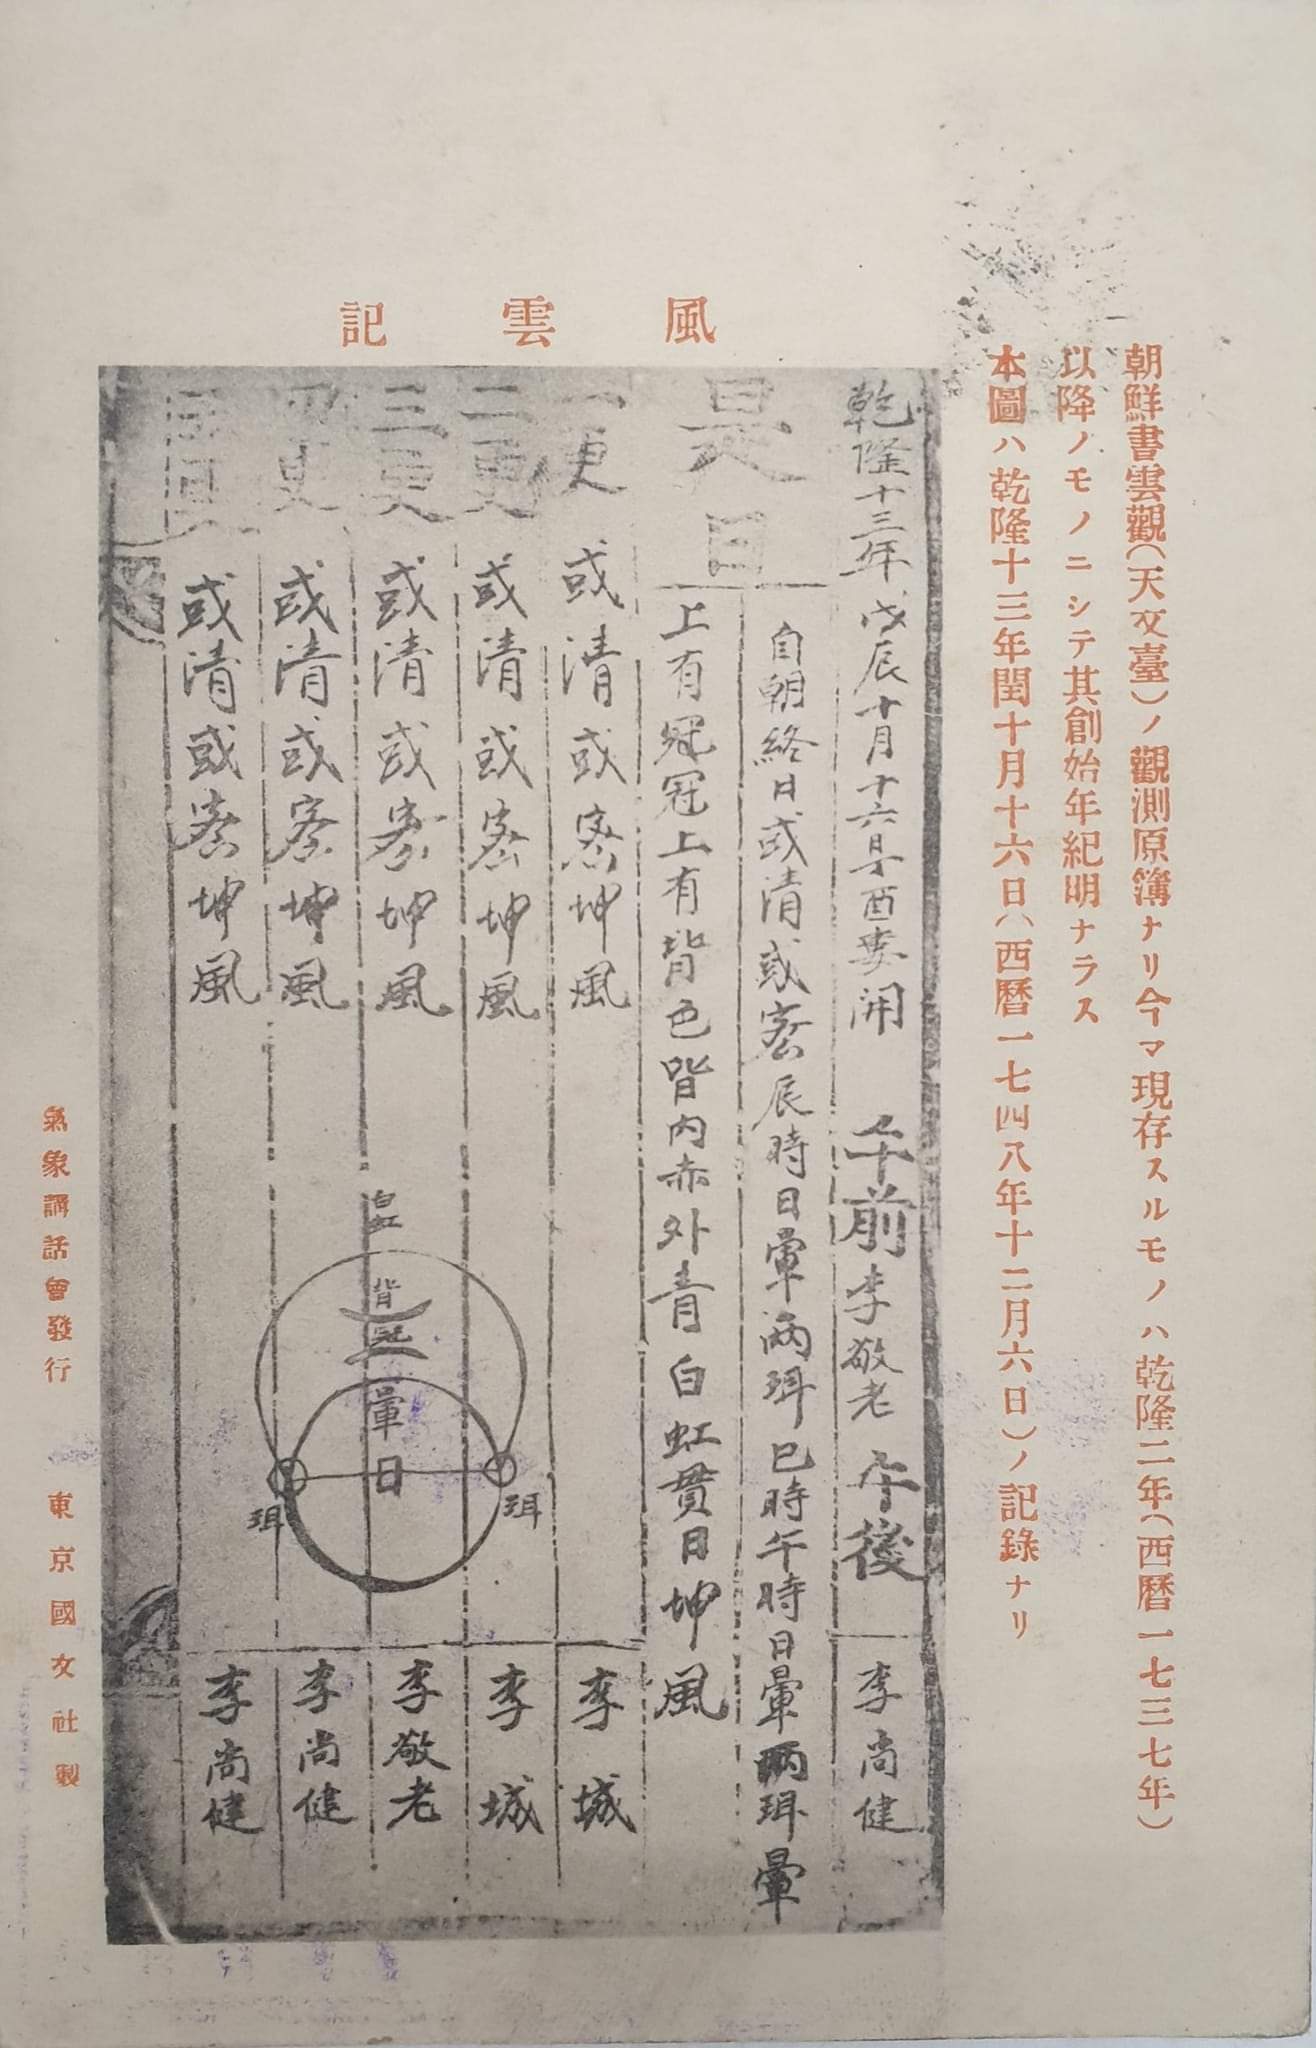 風雲記
朝鮮書雲觀(天文臺)ノ觀測原簿ナリ今マ現存スルモノハ乾隆二年(西曆一七三七年)
以降ノモノニシテ其創始年紀明ナラス
本圖ハ乾隆十三年閏十月十六日(西曆一七四八年十二月六日)ノ記錄ナリ
乾隆十三年戊辰十月十六日辛酉婁開 午前 李敬老 午後 李尚健
是日
自朝終日或清或密辰時日暈兩珥巳時午時日暈兩珥暈
上有冠冠上有背色皆內赤外青白虹貫日坤風
一更 或清或密坤風 李城
二更 或清或密坤風 李城
三更 或清或密坤風 李敬老
四更 或清或密坤風 李尚健
五更 或清或密坤風 李尚健
白虹
背
冠
暈
日
珥
珥
氣象講話會發行 東京國文社製